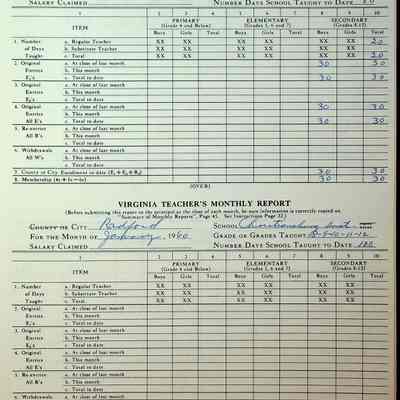 SALARY CLAIMED NUMBER DAYS SCHOOL TAUGHT TO DATE
ITEM PRIMARY (Grade 4 and Below) ELEMENTARY (Grades 5, 6 and 7) SECONDARY (Grades 8-12)
Boys Girls Total Boys Girls Total Boys Girls Total
1 2 3 4 5 6 7 8 9 10
1. Number a. Regular Teacher XX XX XX XX XX XX 20
of Days b. Substitute Teacher XX XX XX XX XX XX
Taught c. Total XX XX XX XX XX XX 20
2. Original a. At close of last month 30 30
Entries b. This month
E1's c. Total to date 30 30
3. Original a. At close of last month
Entries b. This month
c. Total to date
4. Original a. At close of last month 30 30
Entries b. This month
All E's c. Total to date 30 30
5. Re-entries a. At close of last month
All R's b. This month
c. Total to date
6. Withdrawals a. At close of last month
All W's b. This month
c. Total to date
7. County or City Enrollment to date 30 30
8. Membership 30 30
(OVER)
VIRGINIA TEACHER'S MONTHLY REPORT
(Before submitting this report to the principal at the close of each month, be sure information is correctly copied on
"Summary of Monthly Reports", Page 45. See Instructions Page 32.)
COUNTY OR CITY Radford SCHOOL Christiansburg Inst.
FOR THE MONTH OF January 1960 GRADE OR GRADES TAUGHT 8-9-10-11-12
SALARY CLAIMED NUMBER DAYS SCHOOL TAUGHT TO DATE 100
1 2 3 4 5 6 7 8 9 10
ITEM PRIMARY (Grade 4 and Below) ELEMENTARY (Grades 5, 6 and 7) SECONDARY (Grades 8-12)
Boys Girls Total Boys Girls Total Boys Girls Total
1. Number a. Regular Teacher XX XX XX XX XX XX
of Days b. Substitute Teacher XX XX XX XX XX XX
Taught c. Total XX XX XX XX XX XX
2. Original a. At close of last month
Entries b. This month
E1's c. Total to date
3. Original a. At close of last month
Entries b. This month
E2's c. Total to date
4. Original a. At close of last month
Entries b. This month
All E's c. Total to date
5. Re-entries a. At close of last month
All R's b. This month
c. Total to date
6. Withdrawals a. At close of last month